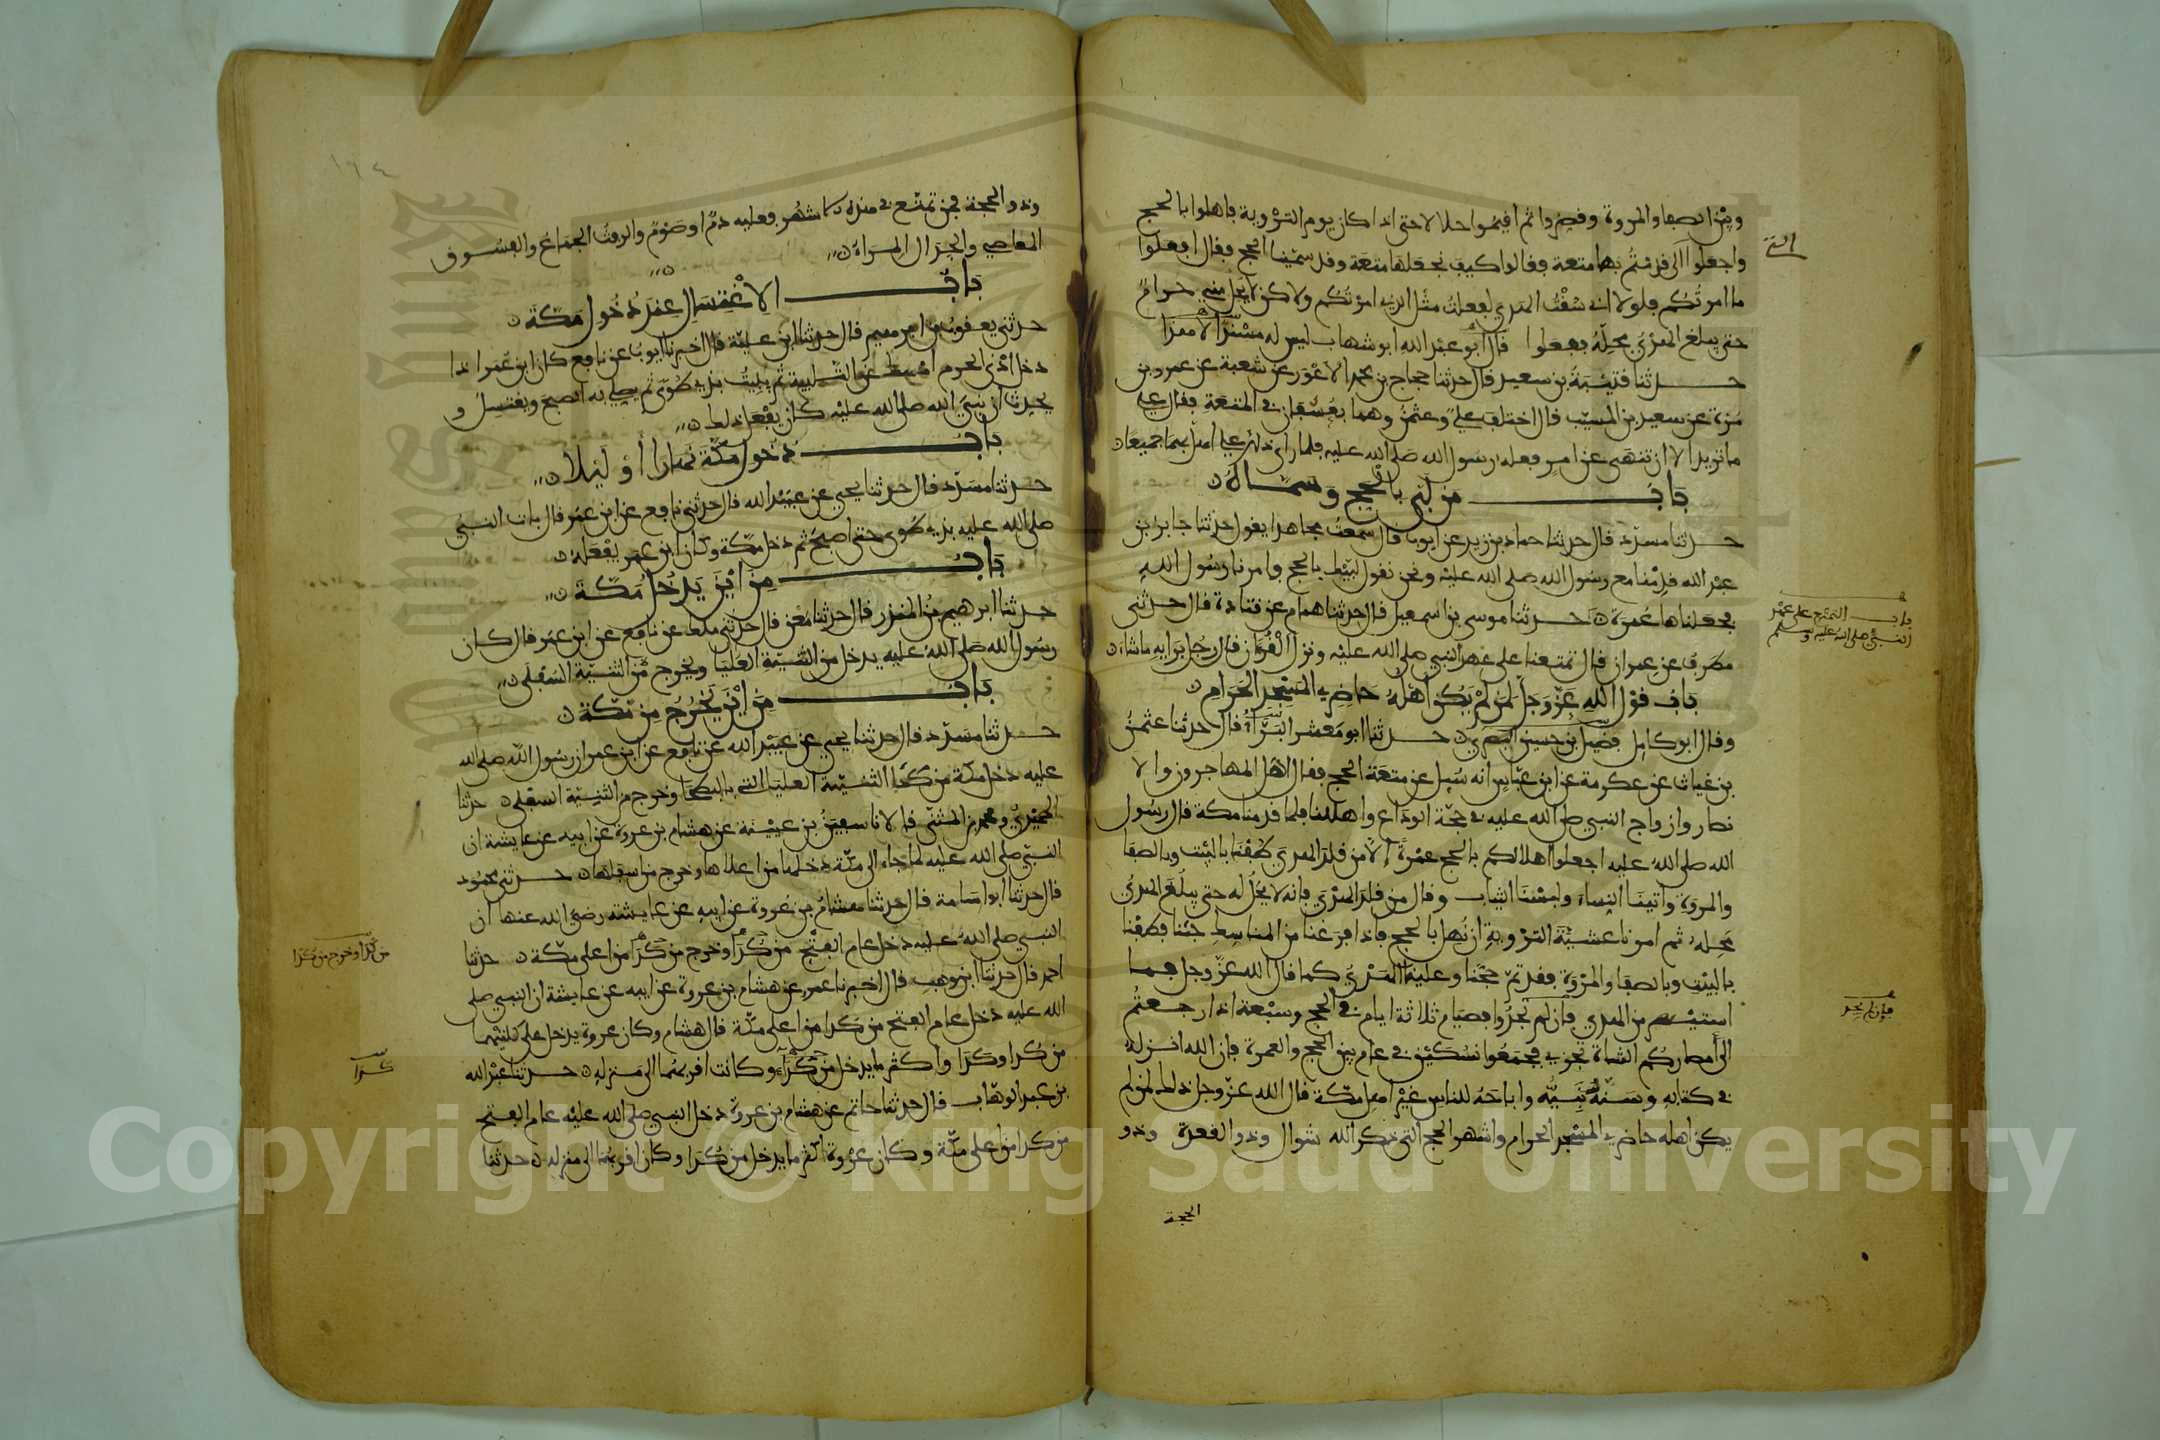 وبين الصفا والمروة وقصروا ثم اقيموا حلالا حتى اذا كان يوم التروية فاهلوا بالحج
واجعلوا التي قدمتم بها متعة فقالوا كيف نجعلها متعة وقد سمينا الحج فقال افعلوا
التي
ما امرتكم فلولا اني سقت الهدي لفعلت مثل الذي امرتكم ولاكن لا يحل مني حرام
حتى يبلغ الهدي محله ففعلوا قال ابو عبد الله ابو شهاب ليس له مسند الا هذا
حدثنا قتيبة بن سعيد قال حدثنا حجاج بن محمد الاعور عن شعبة عن عمرو بن
مرة عن سعيد بن المسيب قال اختلف علي وعثمن وهما بعسفان في المتعة فقال علي
ما تريد الا ان تنهى عن امر فعله رسول الله صلى الله عليه فلما راى ذلك علي اهل بهما جميعا
باب من لبى بالحج وسماه
حدثنا مسدد قال حدثنا حماد بن زيد عن ايوب قال سمعت مجاهدا يقول حدثنا جابر بن
عبد الله قدمنا مع رسول الله صلى الله عليه ونحن نقول لبيك بالحج وامرنا رسول الله
فجعلناها عمرة حدثنا موسى بن اسمعيل قال حدثنا همام عن قتادة قال حدثني
باب التمتع على عهد
النبي صلى الله عليه وسلم
مطرف عن عمران قال تمتعنا على عهد النبي صلى الله عليه ونزل القرءان قال رجل برايه ما شاء
باب قول الله عز وجل لمن لم يكن اهله حاضري المسجد الحرام
وقال ابو كامل فضيل بن حسين البصري حدثنا ابو معشر البراء قال حدثنا عثمن
بن غياث عن عكرمة عن ابن عباس انه سيل عن متعة الحج فقال اهل المهاجرون والا
نصار وازواج النبي صلى الله عليه في حجة الوداع واهللنا فلما قدمنا مكة قال رسول
الله صلى الله عليه اجعلوا اهلالكم بالحج عمرة الا من قلد الهدي طفنا بالبيت وبالصفا
والمروة واتينا النساء ولبسنا الثياب وقال من قلد الهدي فانه لا يحل له حتى يبلغ الهدي
محله ثم امرنا عشية التروية ان نهل بالحج فاذا فرغنا من المناسك جئنا فطفنا
بالبيت وبالصفا والمروة فقد تم حجنا وعلينا الهدي كما قال الله عز وجل فما
استيسر من الهدي فان لم تجدوا فصيام ثلاثة ايام في الحج وسبعة اذا رجعتم
فان لم يجد
الى امصاركم الشاة تجزي فجمعوا نسكين في عام بين الحج والعمرة فان الله انزله
في كتابه وسنة نبيه واباحه للناس غير اهل مكة قال الله عز وجل ذلك لمن لم
يكن اهله حاضري المسجد الحرام واشهر الحج التي ذكر الله شوال وذو القعدة وذو
الحجة
١٩٤
وذو الحجة فمن تمتع في هذه الاشهر فعليه دم او صوم والرفث الجماع والفسوق
المعاصي والجدال المراء
باب الاغتسال عند دخول مكة
حدثني يعقوب بن ابرهيم قال حدثنا ابن علية قال اخبرنا ايوب عن نافع كان ابن عمر اذا
دخل ادنى الحرم امسك عن التلبية ثم يبيت بذي طوى ثم يصلي به الصبح ويغتسل و
يحدث ان نبي الله صلى الله عليه كان يفعل ذلك
باب دخول مكة نهارا او ليلا
حدثنا مسدد قال حدثنا يحيى عن عبيد الله قال حدثني نافع عن ابن عمر قال بات النبي
صلى الله عليه بذي طوى حتى اصبح ثم دخل مكة وكان ابن عمر يفعله
باب من اين يدخل مكة
حدثنا ابرهيم بن المنذر قال حدثنا معن قال حدثني ملك عن نافع عن ابن عمر قال كان
رسول الله صلى الله عليه يدخل من الثنية العليا ويخرج من الثنية السفلى
باب من اين يخرج من مكة
حدثنا مسدد قال حدثنا يحيى عن عبيد الله عن نافع عن ابن عمر ان رسول الله صلى الله
عليه دخل مكة من كداء الثنية العليا التي بالبطحا وخرج من الثنية السفلى حدثنا
الحميدي ومحمد بن المثنى قالا نا سفين بن عيينة عن هشام بن عروة عن ابيه عن عايشة ان
النبي صلى الله عليه لما جاء الى مكة دخلها من اعلاها وخرج من اسفلها حدثني محمود
قال حدثنا ابو اسامة قال حدثنا هشام بن عروة عن ابيه عن عايشة رضي الله عنها ان
النبي صلى الله عليه دخل عام الفتح من كدا وخرج من كدا من اعلى مكة حدثنا
من كدا وخرج من كدا
احمد قال حدثنا ابن وهب قال اخبرنا عمرو عن هشام بن عروة عن ابيه عن عايشة ان النبي صلى
الله عليه دخل عام الفتح من كدا من اعلى مكة قال هشام وكان عروة يدخل على كلتيهما
من كدا وكدا واكثر ما يدخل من كداء وكانت اقربهما الى منزله حدثنا عبد الله
كدا
بن عبد الوهاب قال حدثنا حاتم عن هشام بن عروة دخل النبي صلى الله عليه عام الفتح
من كدا من اعلى مكة وكان عروة اكثر ما يدخل من كدا وكان اقربهما الى منزله حدثنا
Copyright © King Saud University